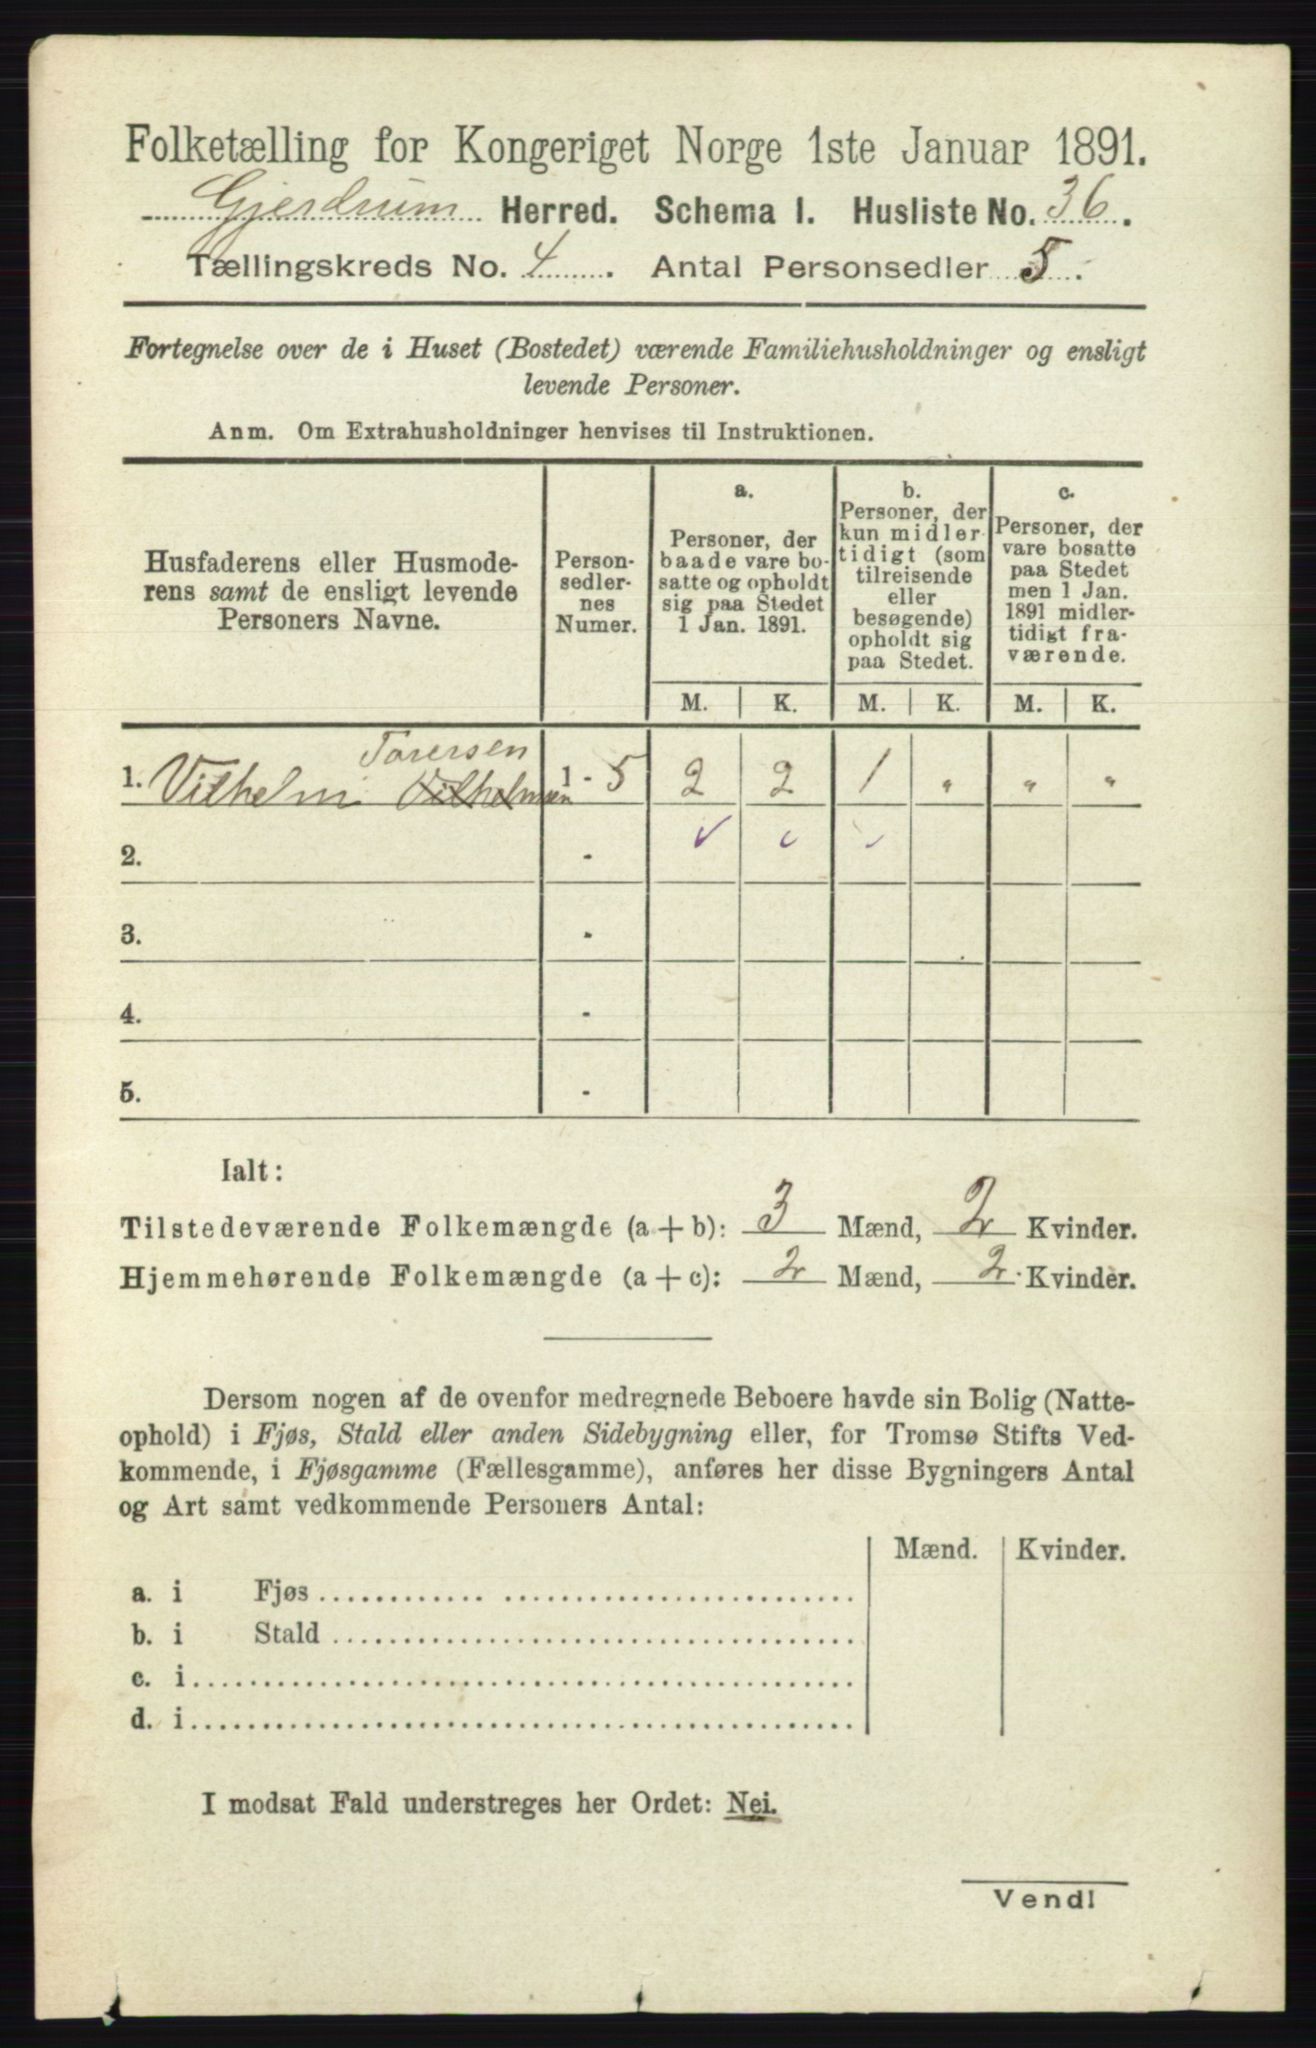 Folketælling for Kongeriget Norge 1ste Januar 1891.
Gjerdrum Herred. Schema I. Husliste No. 36.
Tællingskreds No. 4. Antal Personsedler 5.
Fortegnelse over de i Huset (Bostedet) værende Familiehusholdninger og ensligt
levende Personer.
Anm. Om Extrahusholdninger henvises til Instruktionen.
Husfaderens eller Husmode-
rens samt de ensligt levende
Personers Navne.
Person-
sedler-
nes
Numer.
a.
Personer, der
baade vare bo-
satte og opholdt
sig paa Stedet
1 Jan. 1891.
b.
Personer, der
kun midler-
tidigt (som
tilreisende
eller
besøgende)
opholdt sig
paa Stedet.
c.
Personer, der
vare bosatte
paa Stedet
men 1 Jan.
1891 midler-
tidigt fra-
værende.
M. K. M. K. M. K.
Torersen
1. Vilhelm Vilhelmsen 1 - 5 2 2 1 " " "
2. -
3. -
4. -
5. -
Ialt:
Tilstedeværende Folkemængde (a + b): 3 Mænd, 2 Kvinder.
Hjemmehørende Folkemængde (a + c): 2 Mænd, 2 Kvinder.
Dersom nogen af de ovenfor medregnede Beboere havde sin Bolig (Natte-
ophold) i Fjøs, Stald eller anden Sidebygning eller, for Tromsø Stifts Ved-
kommende, i Fjøsgamme (Fællesgamme), anføres her disse Bygningers Antal
og Art samt vedkommende Personers Antal:
Mænd. Kvinder.
a. i Fjøs
b. i Stald
c. i
d. i
I modsat Fald understreges her Ordet: Nei.
Vend!